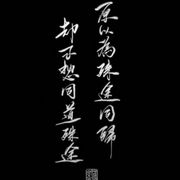 原以為殊途同歸
却不想同道殊途